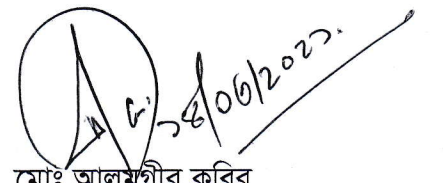 ১৪/০৬/২০২১
মোঃ আলমগীর কবির